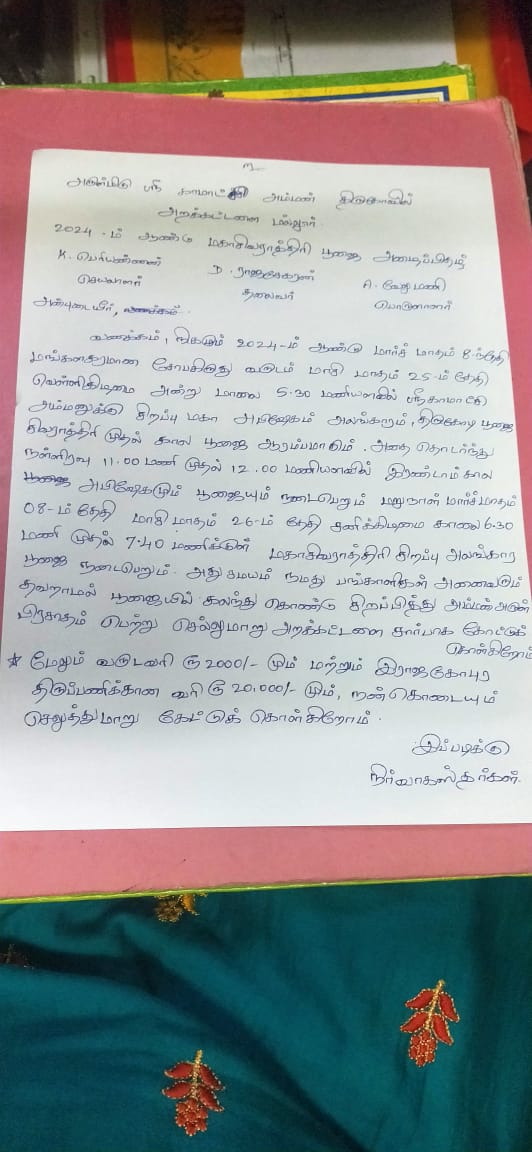 உ
அருள்மிகு ஸ்ரீ காமாட்சி அம்மன் திருகோவில்
அறக்கட்டளை மல்லூர்.
2024-ம் ஆண்டு மகாசிவராத்திரி பூஜை அழைப்பிதழ்
K. பெரியண்ணன் D. ராஜசேகரன் A. வேலுமணி
செயலாளர் தலைவர் பொருளாளர்
அன்புடையீர், வணக்கம்.
வணக்கம், நிகழும் 2024-ம் ஆண்டு மார்ச் மாதம் 8-ந்தேதி
மங்களகரமான சோபகிருது வருடம் மாசி மாதம் 25-ம் தேதி
வெள்ளிகிழமை அன்று மாலை 5.30 மணியளவில் ஸ்ரீகாமாட்சி
அம்மனுக்கு சிறப்பு மகா அபிஷேகம் அலங்காரம், பூஜை
சிவராத்திரி முதல் கால பூஜை ஆரம்பமாகும். அதை தொடர்ந்து
நள்ளிரவு 11.00 மணி முதல் 12.00 மணியளவில் இரண்டாம் கால
பூஜை அபிஷேகமும் பூஜையும் நடைபெறும் மறுநாள் மார்ச்மாதம்
08-ம்தேதி மாசி மாதம் 26-ம் தேதி சனிக்கிழமை காலை 6.30
மணி முதல் 7.40 மணிக்குள் மகாசிவராத்திரி சிறப்பு அலங்கார
பூஜை நடைபெறும். அது சமயம் நமது பங்காளிகள் அனைவரும்
தவறாமல் பூஜையில் கலந்து கொண்டு சிறப்பித்து அம்மன் அருள்
பிரசாதம் பெற்று செல்லுமாறு அறக்கட்டளை சார்பாக கேட்டுக்
கொள்கிறோம்
* மேலும் வருடவரி ரூ 2000/- மும் மற்றும் இராஜகோபுர
திருப்பணிக்கான வரி ரூ 20,000/- மும், நன்கொடையும்
செலுத்துமாறு கேட்டுக் கொள்கிறோம்.
இப்படிக்கு
நிர்வாகஸ்தர்கள்.